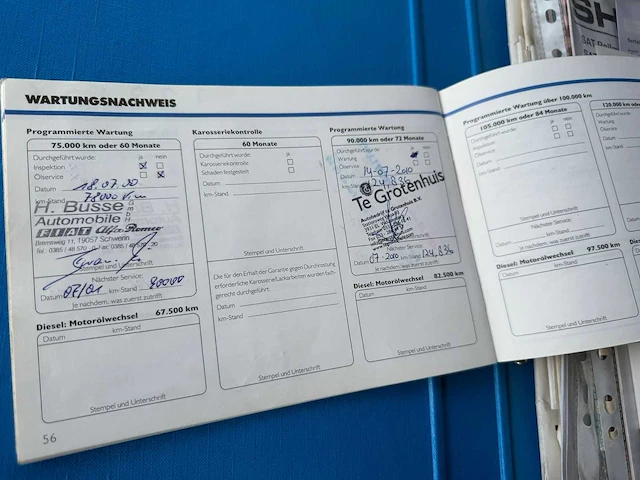 WARTUNGSNACHWEIS
Programmierte Wartung
75.000 km oder 60 Monate
Durchgeführt wurde: ja nein
Inspektion
Ölservice
Datum 18.07.00
km-Stand 78000 km
H. Busse
Automobile
FIAT Alfa Romeo
19057 Schwerin
Stempel und Unterschrift
Nächster Service:
Datum 07/01 km-Stand 90000
Je nachdem, was zuerst zutrifft
Diesel: Motorölwechsel 67.500 km
Datum km-Stand
Stempel und Unterschrift
56
Karosseriekontrolle
60 Monate
Durchgeführt wurde: ja nein
Karosseriekontrolle
Schaden festgestellt
Datum
km-Stand
Stempel und Unterschrift
Die für den Erhalt der Garantie gegen Durchrostung
erforderliche Karosserie/Lackarbeiten wurden fach-
gerecht durchgeführt.
Datum
km-Stand
Stempel und Unterschrift
Programmierte Wartung
90.000 km oder 72 Monate
Durchgeführt wurde: ja nein
Wartung
Ölservice
Datum 14-07-2010
km-Stand 124.836
Te Grotenhuis
Autobedrijf te Grotenhuis B.V.
Nächster Service:
07-2010 km-Stand 124.836
Je nachdem, was zuerst zutrifft
Diesel: Motorölwechsel 82.500 km
Datum km-Stand
Stempel und Unterschrift
Programmierte Wartung über 100.000 km
105.000 km oder 84 Monate
Durchgeführt wurde: ja nein
Wartung
Ölservice
Datum
km-Stand
Stempel und Unterschrift
Nächster Service:
Datum km-Stand
Je nachdem, was zuerst zutrifft
Diesel: Motorölwechsel 97.500 km
Datum km-Stand
Stempel und Unterschrift
120.000 km oder
SH